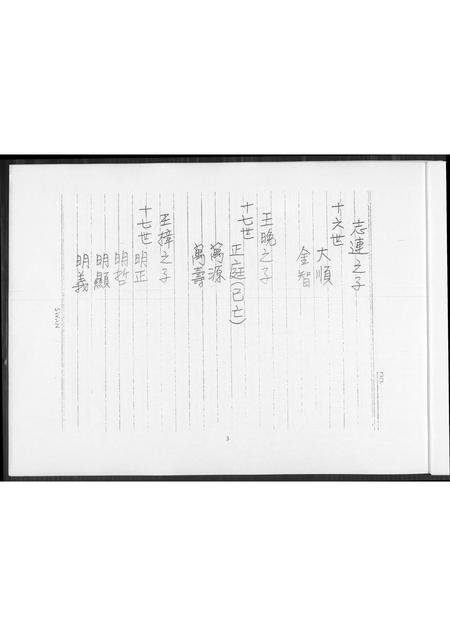 志連之子
十六世
大順
金智
王晚之子
十七世
正庭(已亡)
萬源
萬壽
王擇之子
十七世 明正
明哲
明顯
明義
SWAN
3